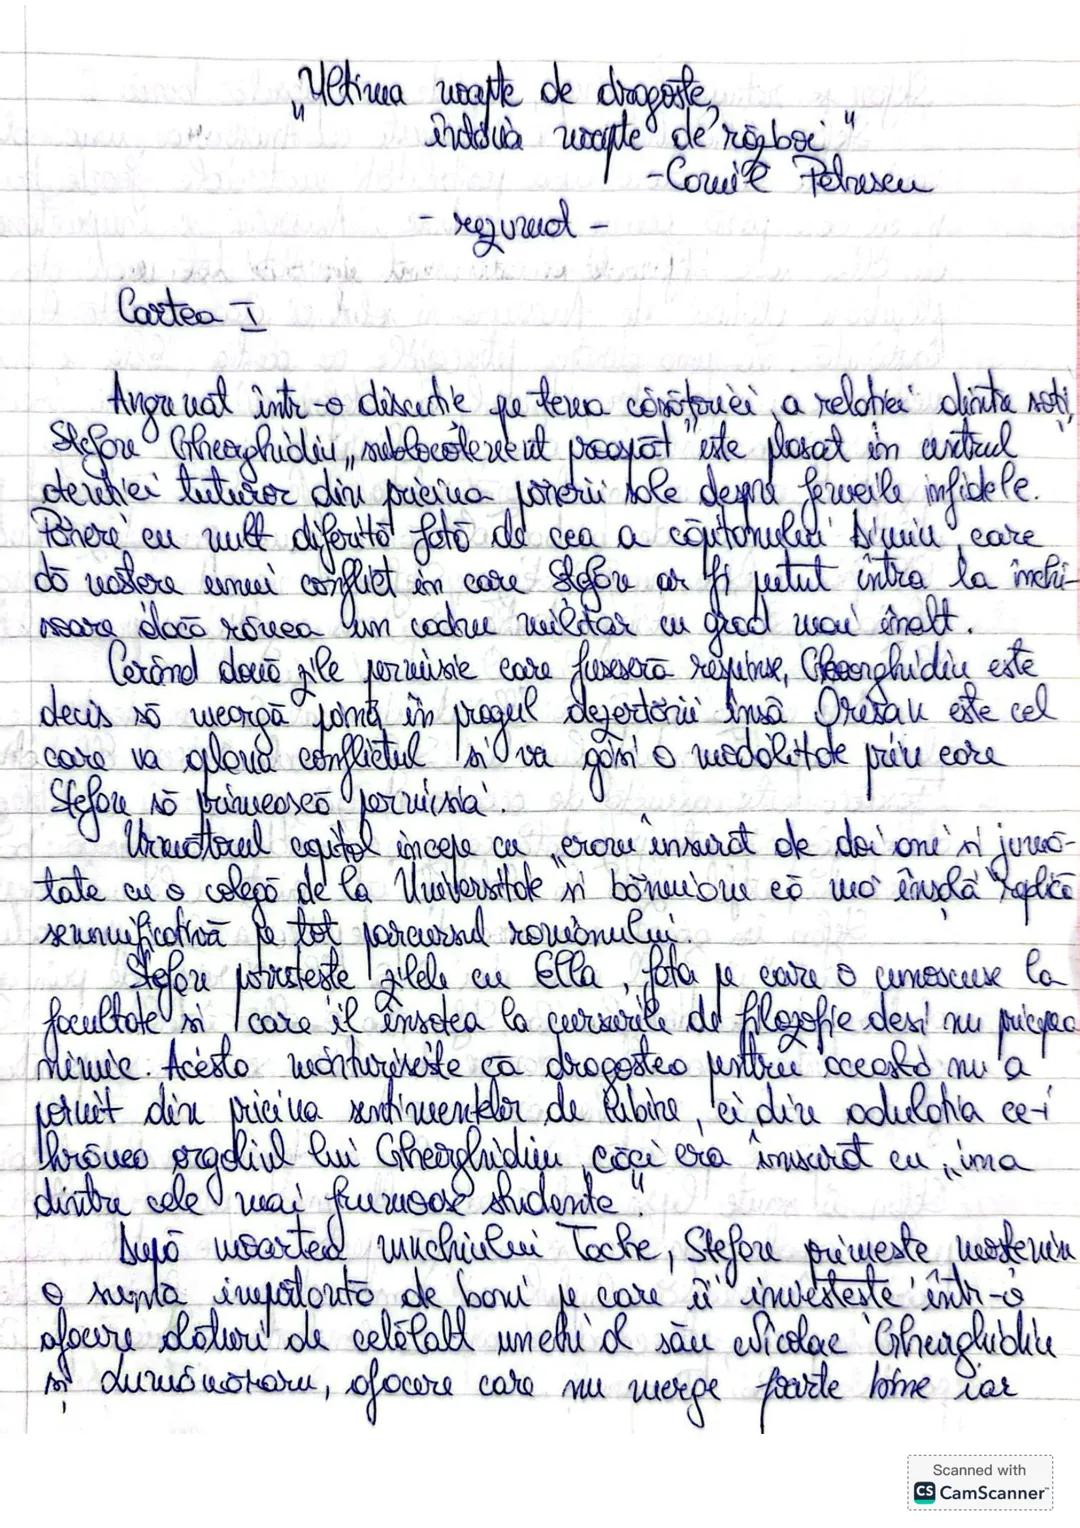 „Ultima noapte de dragoste,
întâia noapte de război"
-Camil Petrescu
- rezumat -
Cartea I
Angrenat într-o discuție pe tema căsătoriei, a relației dintre soți,
Ștefan Gheorghidiu „sublocotenent proaspăt" este plasat în centrul
atenției tuturor din pricina părerii sale despre femeile infidele.
Părere cu mult diferită față de cea a căpitanului Dimiu, care
dă naștere unui conflict în care Ștefan ar fi putut intra la închi-
soare dacă rănea un cadru militar cu grad mai înalt.
Cerând două zile permisie care fuseseră respinse, Gheorghidiu este
decis să meargă până în pragul dezertării însă Orișan este cel
care va aplana conflictul și va găsi o modalitate prin care
Ștefan să primească permisia.
Următorul capitol începe cu „eram însurat de doi ani și jumă-
tate cu o colegă de la Universitate și bănuiam că mă înșală" replică
semnificativă pe tot parcursul romanului.
Ștefan povestește zilele cu Ella, fata pe care o cunoscuse la
facultate și care îl însoțea la cursurile de filozofie deși nu pricepea
nimic. Acesta mărturisește că dragostea pentru aceasta nu a
pornit din pricina sentimentelor de iubire, ci din adulația ce-i
hrănea orgoliul lui Gheorghidiu, căci era însurat cu „una
dintre cele mai frumoase studente".
După moartea unchiului Tache, Ștefan primește moștenire
o sumă importantă de bani pe care îi investește într-o
afacere alături de celălalt unchi al său Nicolae Gheorghidiu
și Lumânăraru, afacere care nu merge foarte bine iar
Scanned with
CS CamScanner